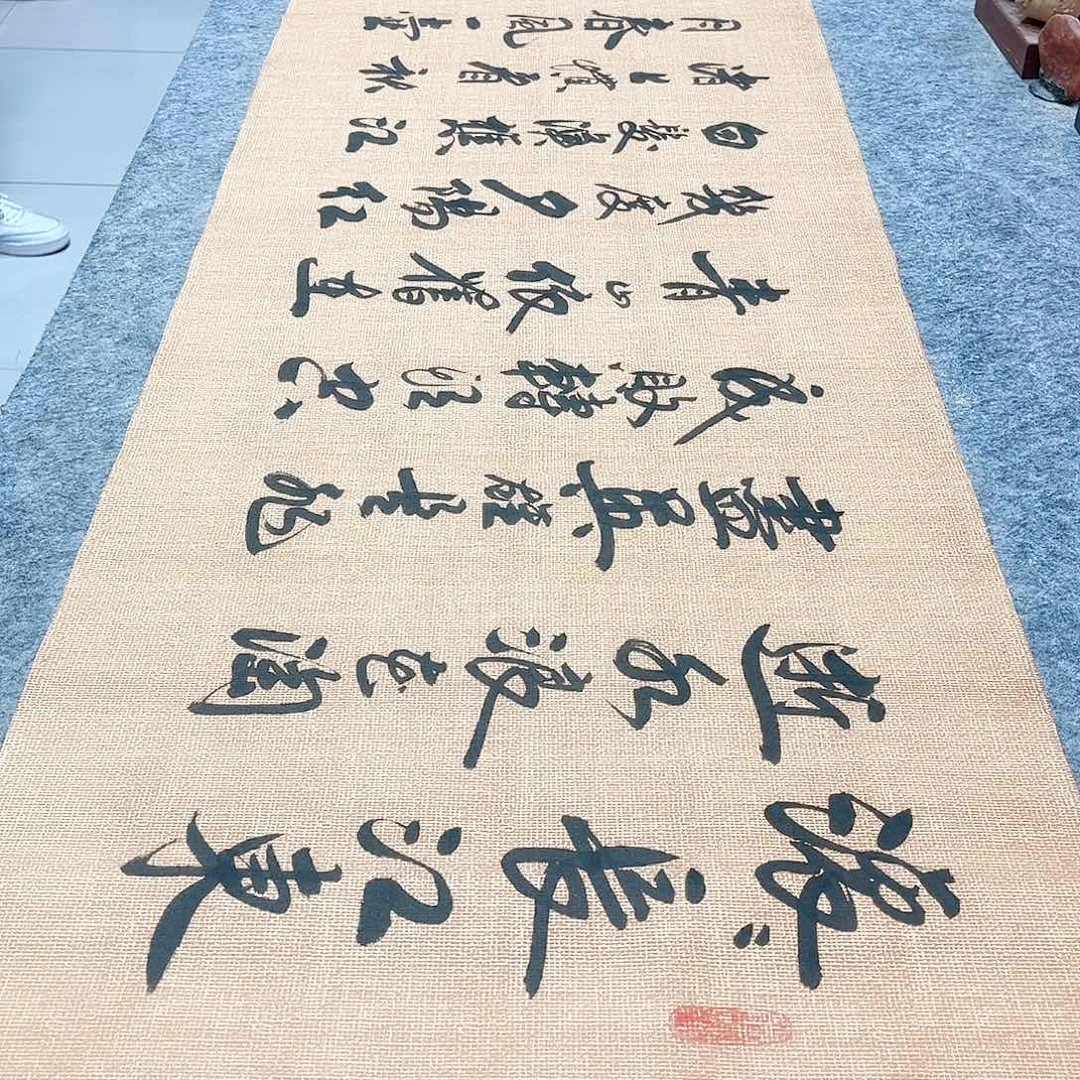 滚〻長江東
逝水浪花淘
盡英雄是非
成敗轉頭空
青山依舊在
幾度夕陽紅
白髮漁樵江
渚上慣看秋
月春風一壺